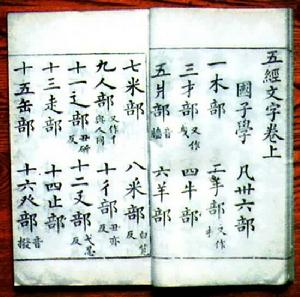 五經文字卷上
國子學 凡卅六部
一木部 二手部 又作扌
三才部 又作 四牛部
五爿部 音牆 六羊部
七米部 八釆部 白莧反
九人部 又作亻與人同 十彳部 丑亦反
十一辶部 丑 反 十二 部 反
十三走部 十四止部
十五缶部 十六癶部 音撥